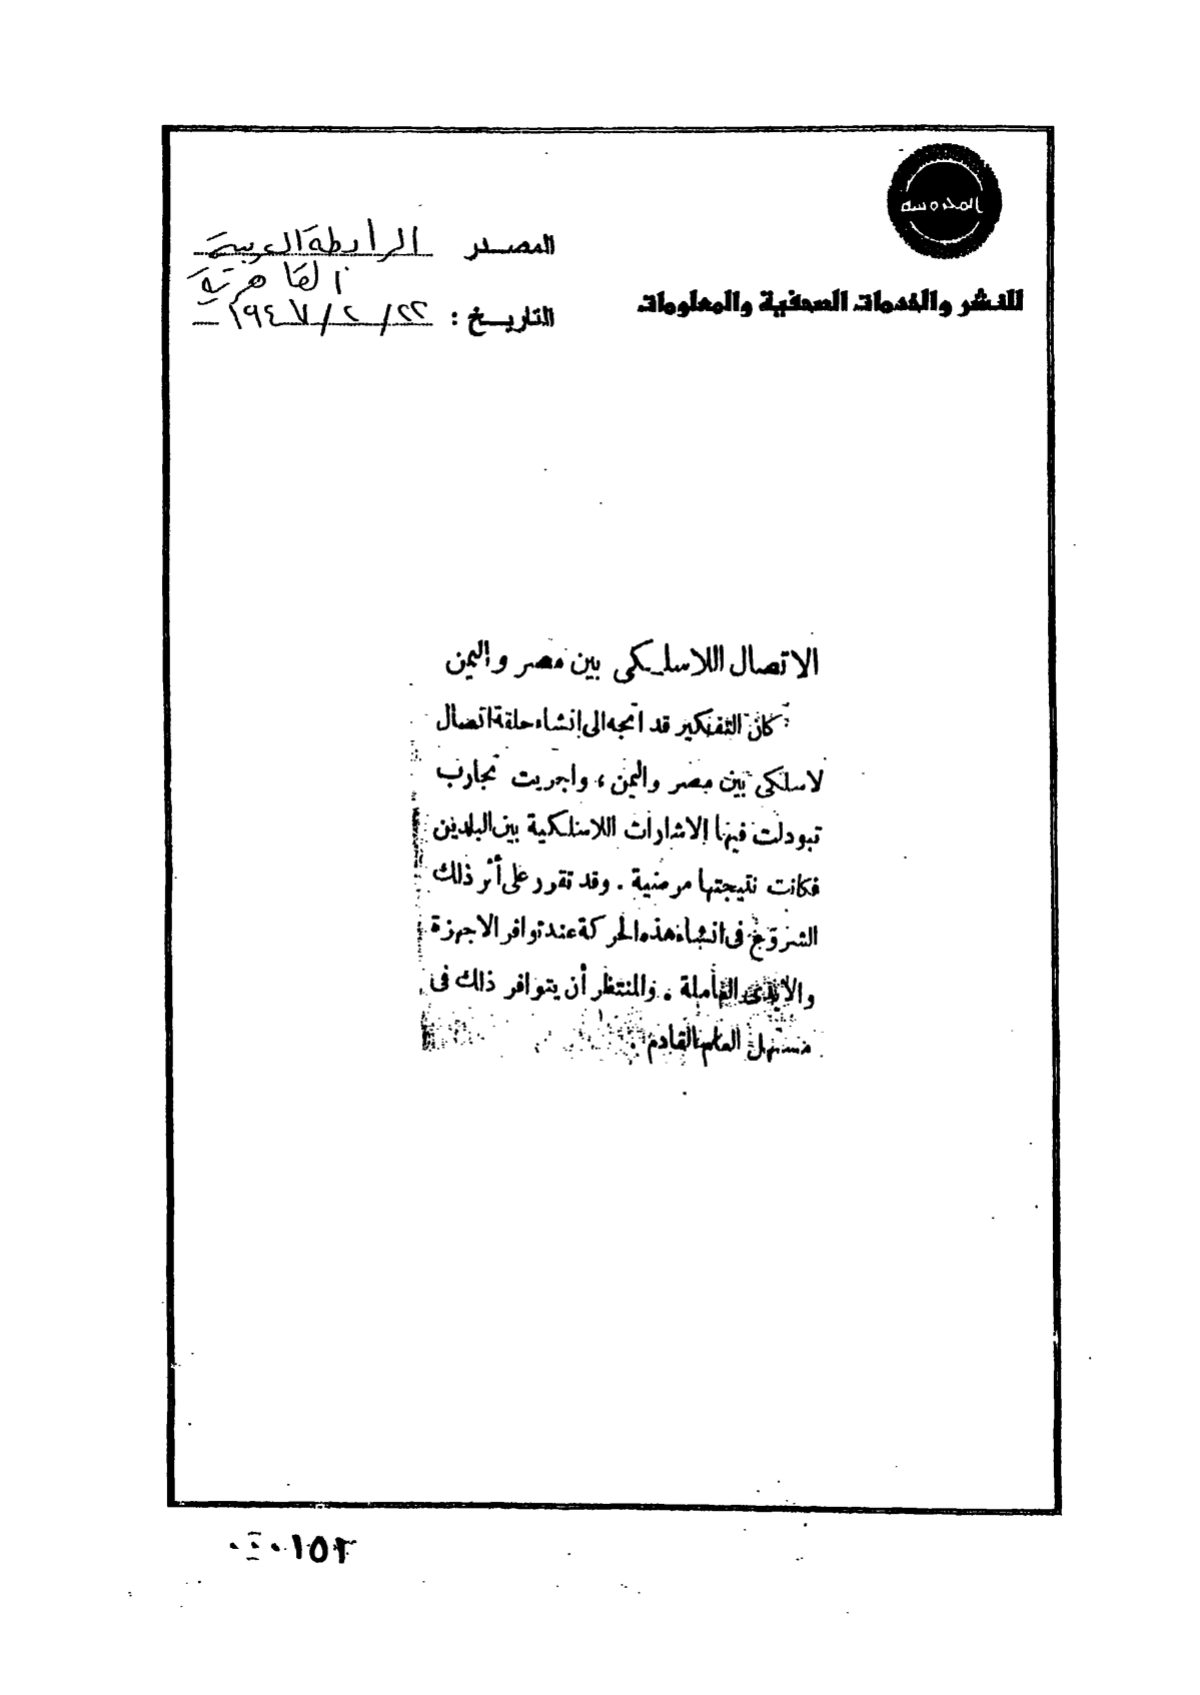 المحروسة
للنشر والخدمات الصحفية والمعلومات
المصدر الرابطة العربية
القاهرية
التاريخ : ٢٢/ ٢ /١٩٤٧
الاتصال اللاسلكى بين مصر واليمن
كان التفكير قد اتجه الى إنشاء حلقة اتصال
لاسلكى بين مصر واليمن ، واجريت تجارب
تبودلت فيها الاشارات اللاسلكية بين البلدين
فكانت نتيجتها مرضية . وقد تقرر على أثر ذلك
الشروع فى انشاء هذه الحركة عند توافر الاجهزة
والأيدى العاملة . والمنتظر أن يتوافر ذلك فى
مستهل العام القادم .